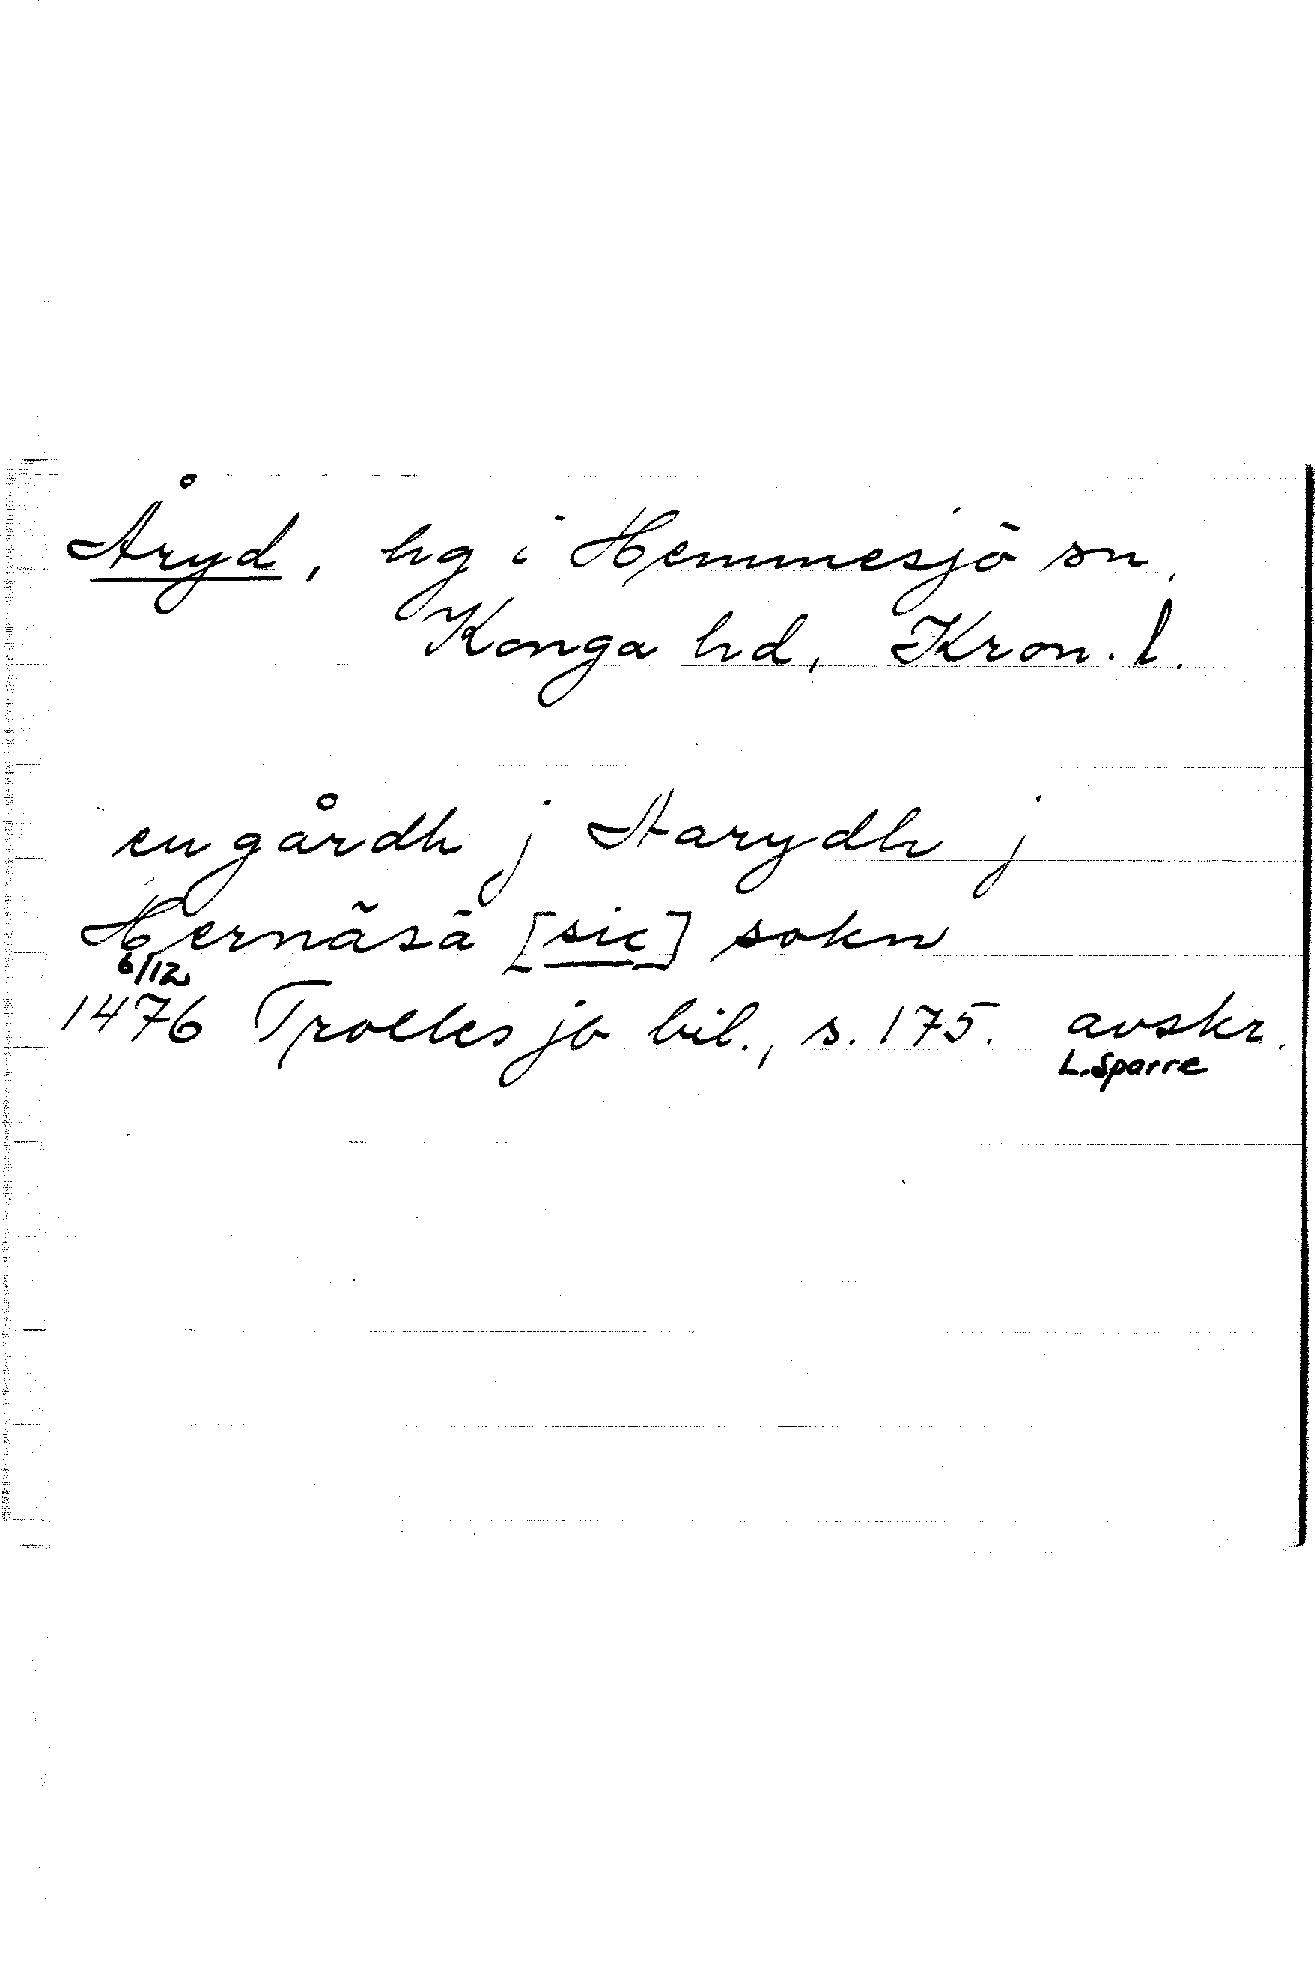 Åryd, hg i Hemmesjö sn,
Konga hd, Kron. l.
en gårdh j Aarydh j
Hernäsä [sic] sokn
6/12
1476 Trolles jb bil., s. 175. avskr.
L. Sparre